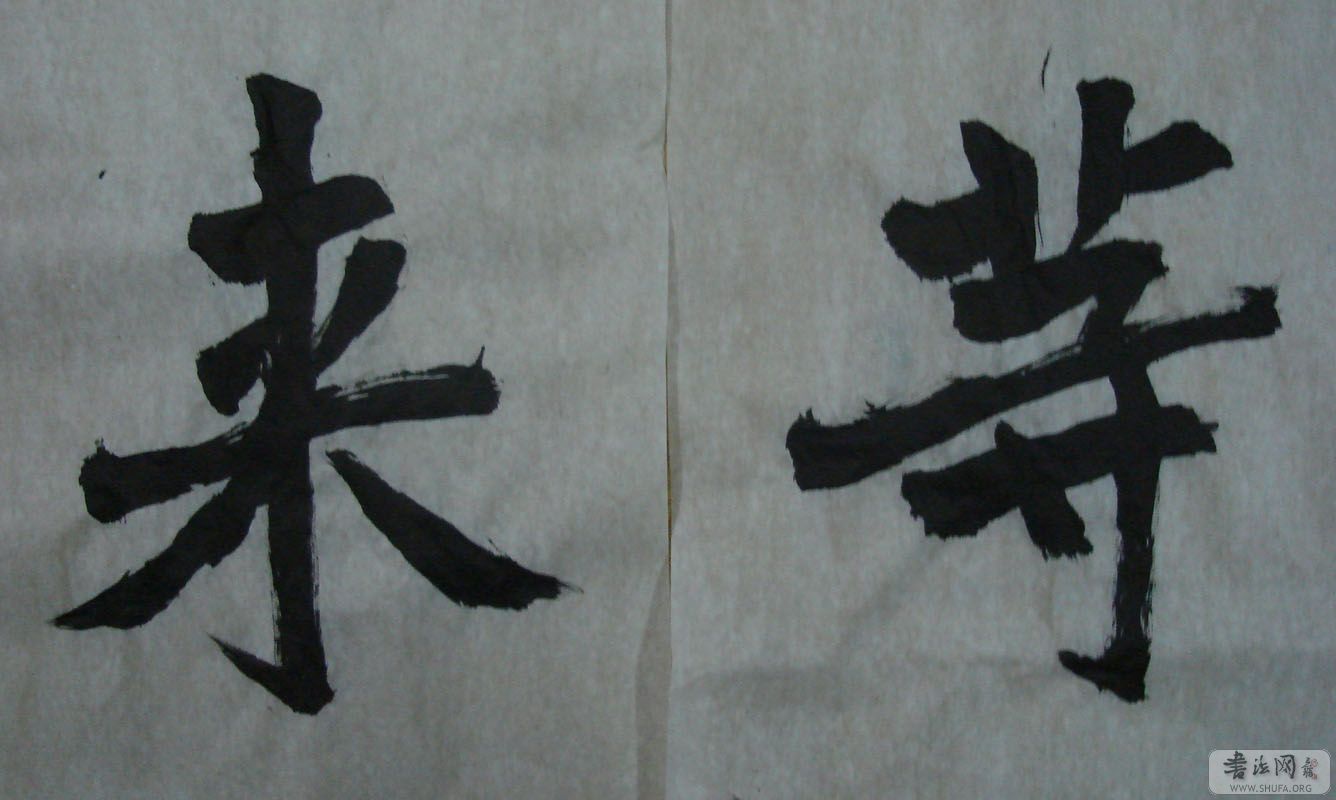 来等
书法网
WWW.SHUFA.ORG